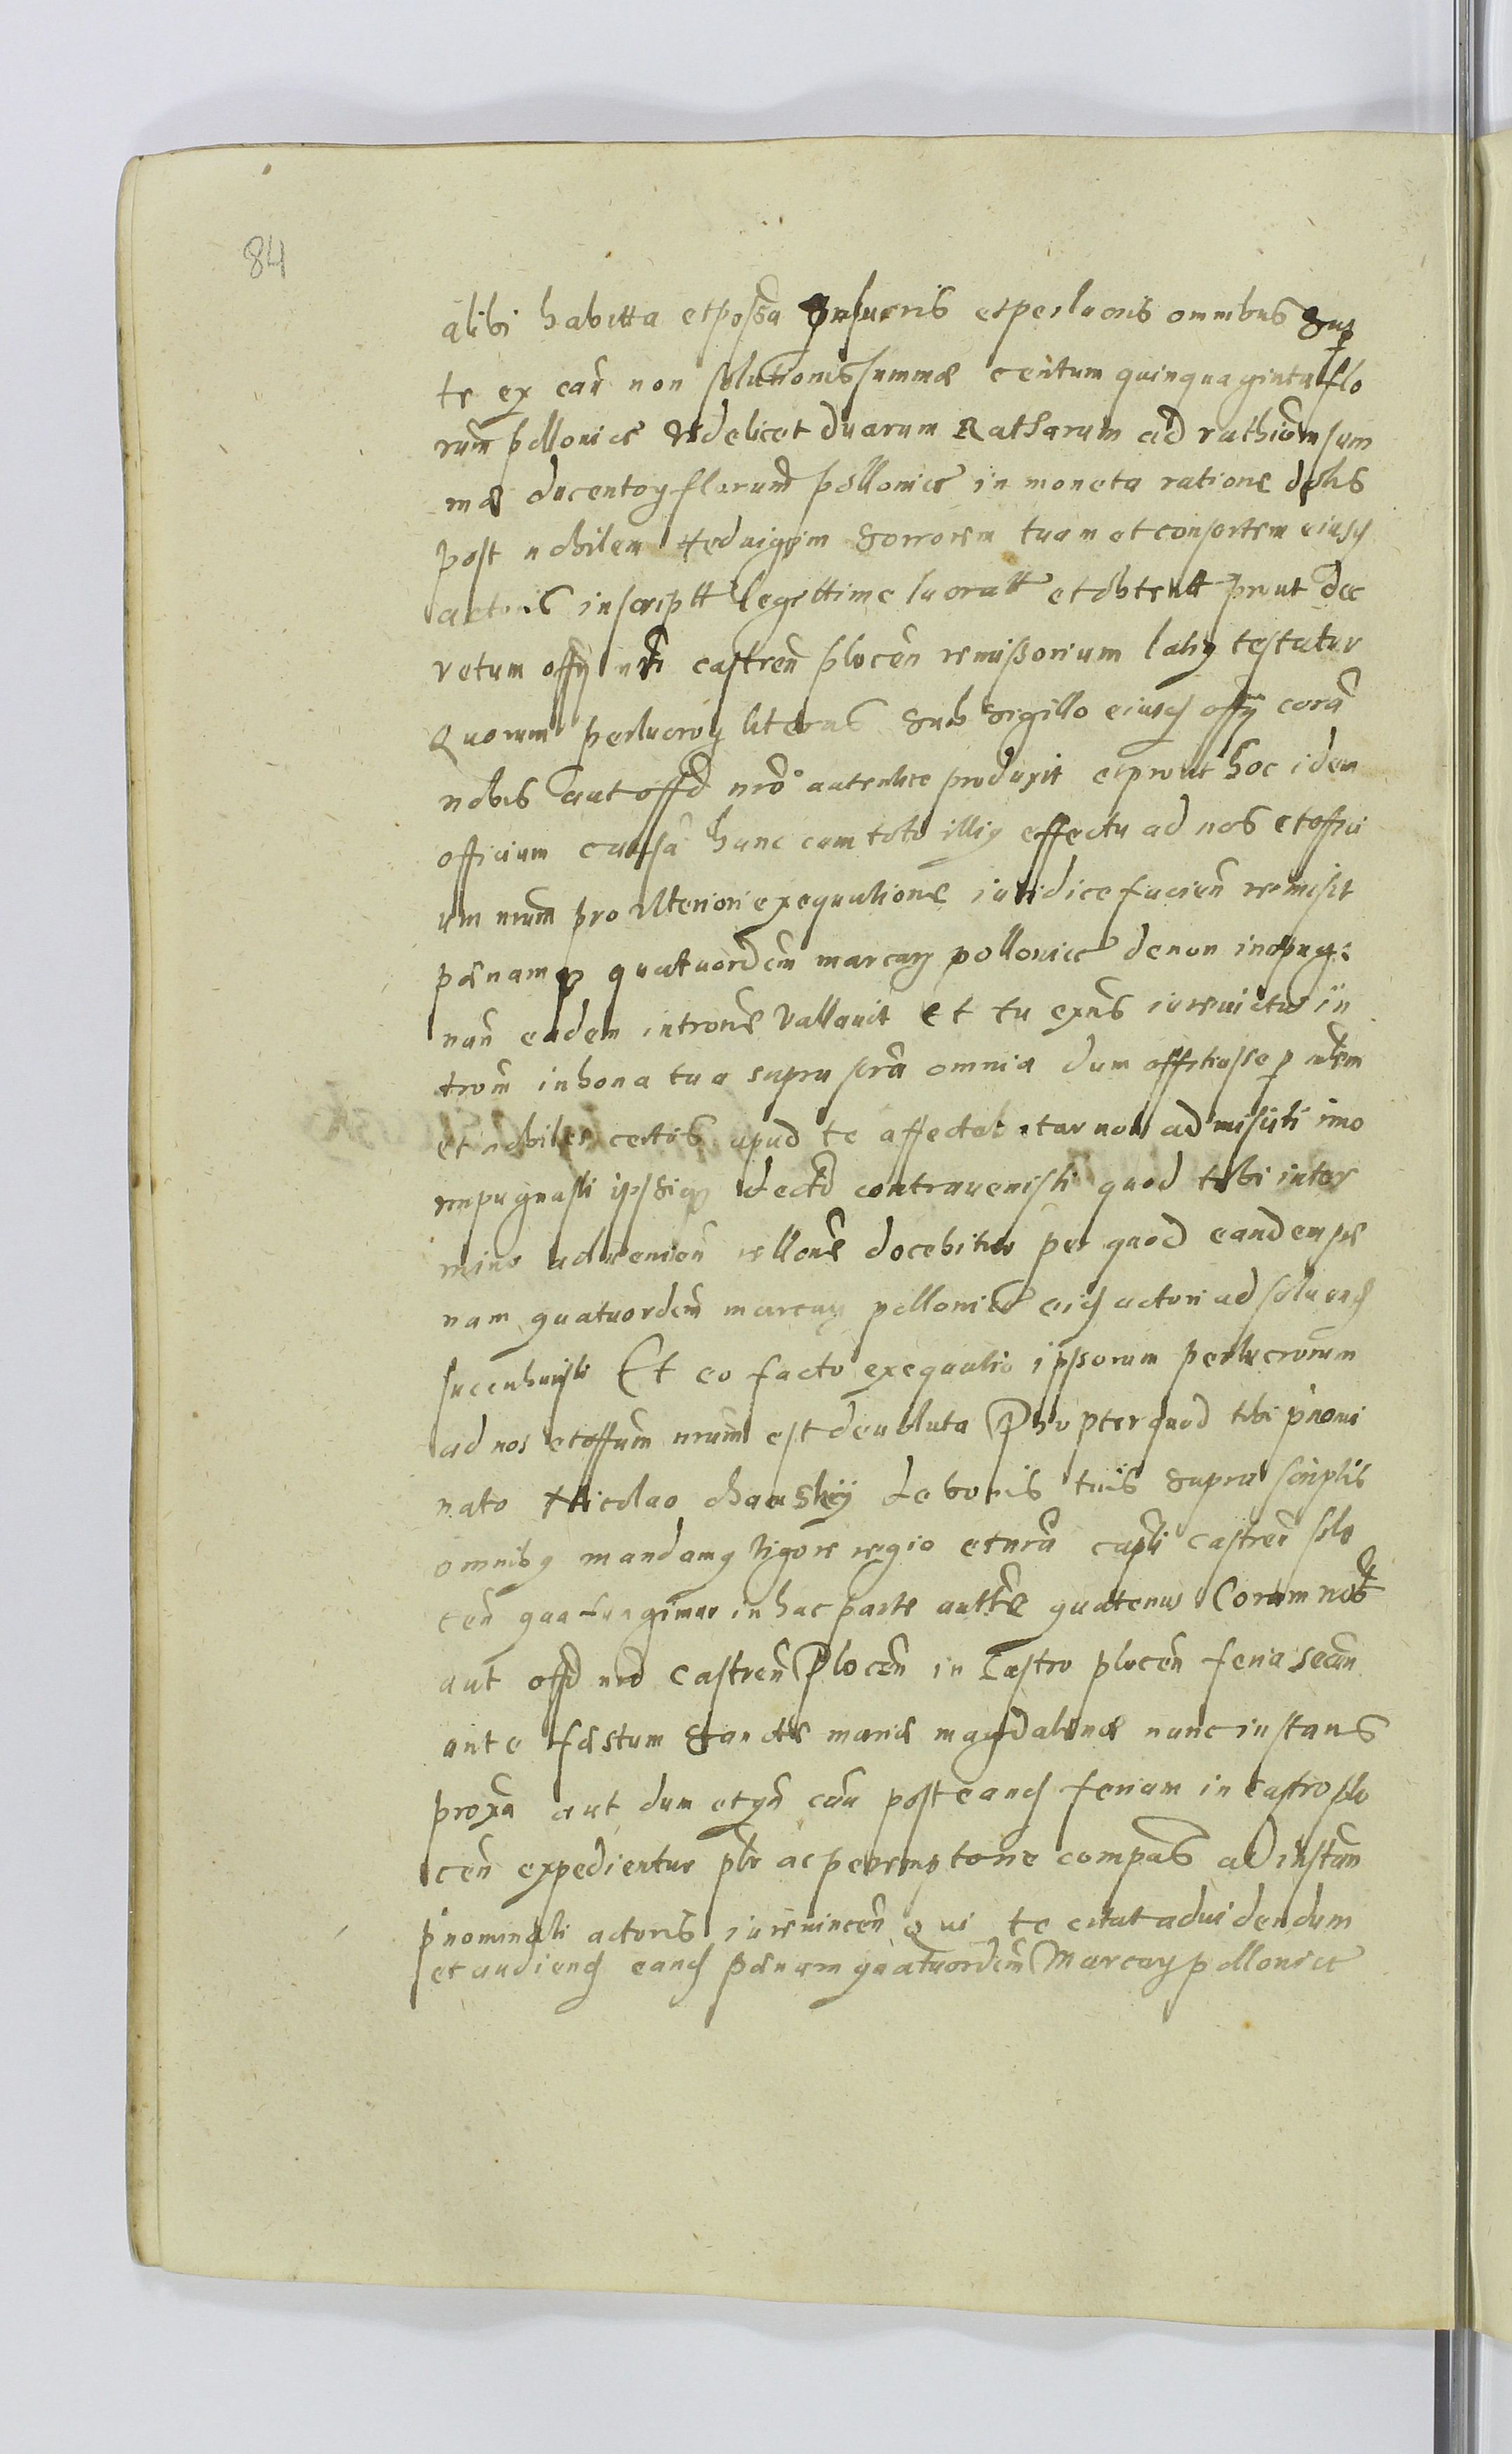 84
alibi habitta et possa in lucris et perlucris omnibus Sup
te ex cau non solutionis summæ centum quinquaginta flo
rum pollonice videlicet duarum Ratharum ad rathiom sum
mæ ducentoy florum pollonice in moneta ratione dotis
post nobilem Heduigim Sororem tuam et consortem eiusd
actoris inscriptt legittime lucratt et obtentt prout dec
retum offy nri castren plocen remissorium latiy testatur
Quorum perlucroy literas sub sigillo eiusd offy corā
nobis aut offo nrō autentice produxit et prout hoc idem
officium causā hanc cum toto illiy effectu ad nos et offici
um nrum pro ulteriori exequutione iuridice facien remisit
pænamq quatuordcim marcay pollonice de non inopug:
nan eadem intromē Vallauit et tu exns iureuictus in
trom in bona tua supra scra omnia dum offitiose p mrem
et nobiles certos apud te affectabatur non admisisti imo
repugnasti ipssiq decto contrauenisti quod tibi inter
mino aduenien rellonē docebitur per quod eandem pæ
nam quatuordcim marcay pollonice eid actori ad soluend
succubuisti Et eo facto exequutio ipsorum perlucrorum
ad nos et offum nrum est deuoluta Propter quod tibi pnomi
nato Nicolao de bonis tuis supra scriptis
omniby mandamy vigore regio et nrā capli castren plo
cen qua fungimur in hac parte autte quatenus Coram nobis
aut offo nro Castren Plocen in Castro plocen feria secun
ante fæstum Sanctæ mariæ magdalenæ nunc instans
proxa aut dum et qn cau post eand feriam in castro plo
cen expedientur plr ac peremptorie compas ad instan
pnominati actoris iureuincen Qui te citat ad uidendum
et audiend eand pænam quatuordcim Marcay pollonice